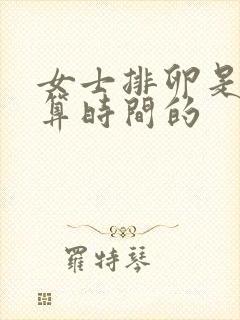 女士排卵是
算時間的
羅特琴